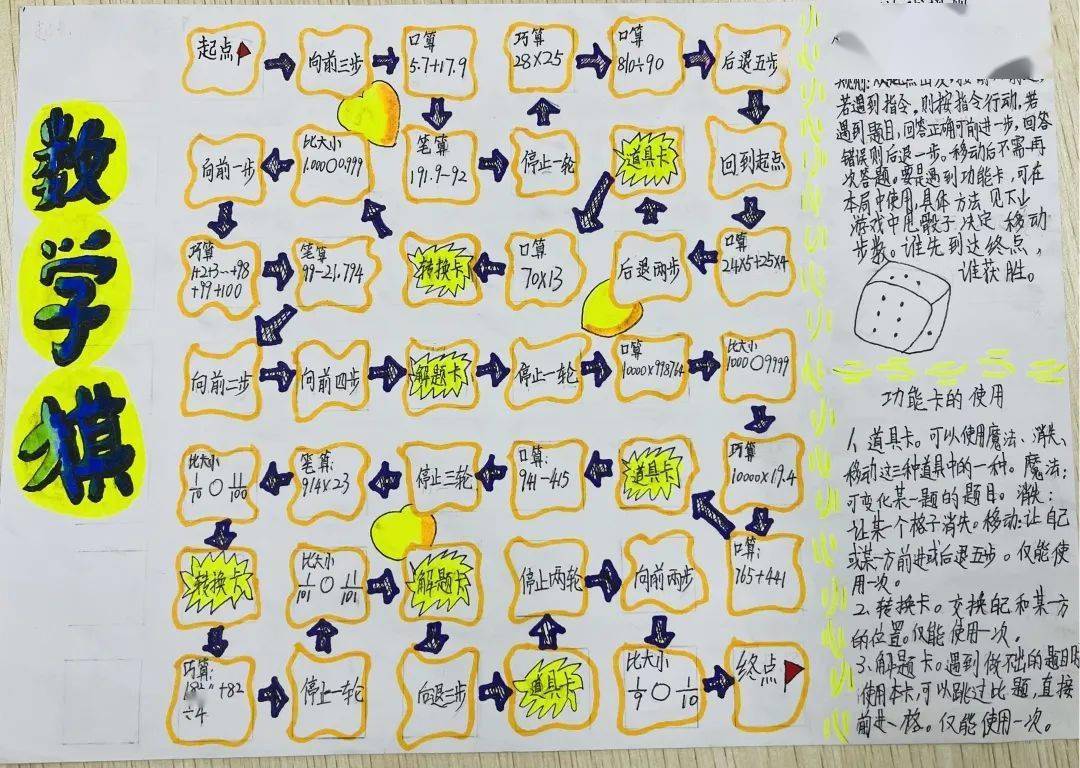 数学棋
起点
向前三步
口算
5.7+17.9
巧算
28×25
口算
810÷90
后退五步
向前一步
比大小
1.000○0.999
笔算
191.9-92
停止一轮
道具卡
回到起点
巧算
1+2+3…+98
+99+100
笔算
99-21.794
转换卡
口算
70×13
后退两步
口算
24×5+25×4
向前二步
向前四步
解题卡
停止一轮
口算
10000×998764
比大小
1000○9999
比大小
1/10○11/100
笔算:
914×23
停止三轮
口算:
941-415
道具卡
巧算
10000×19.4
转换卡
比大小
1/101○11/101
解题卡
停止两轮
向前两步
口算:
765+441
巧算:
+82
÷4
停止一轮
向退三步
道具卡
比大小
1/9○1/10
终点
若遇到指令,则按指令行动,若
遇到题目,回答正确可前进一步,回答
错误则后退一步。移动后不需再
次答题。要是遇到功能卡,可在
本局中使用,具体方法见下少
游戏中甩骰子决定移动
步数。谁先到达终点,
谁获胜。
功能卡的使用
1、道具卡。可以使用魔法、消失、
移动这三种道具中的一种。魔法:
可变化某一题的题目。消失:
让某一个格子消失。移动:让自己
或某一方前进或后退五步。仅能使
用一次。
2、转换卡。交换自己和某一方
的位置。仅能使用一次。
3、解题卡。遇到做不出的题目时
使用本卡,可以跳过比题,直接
前进一格。仅能使用一次。